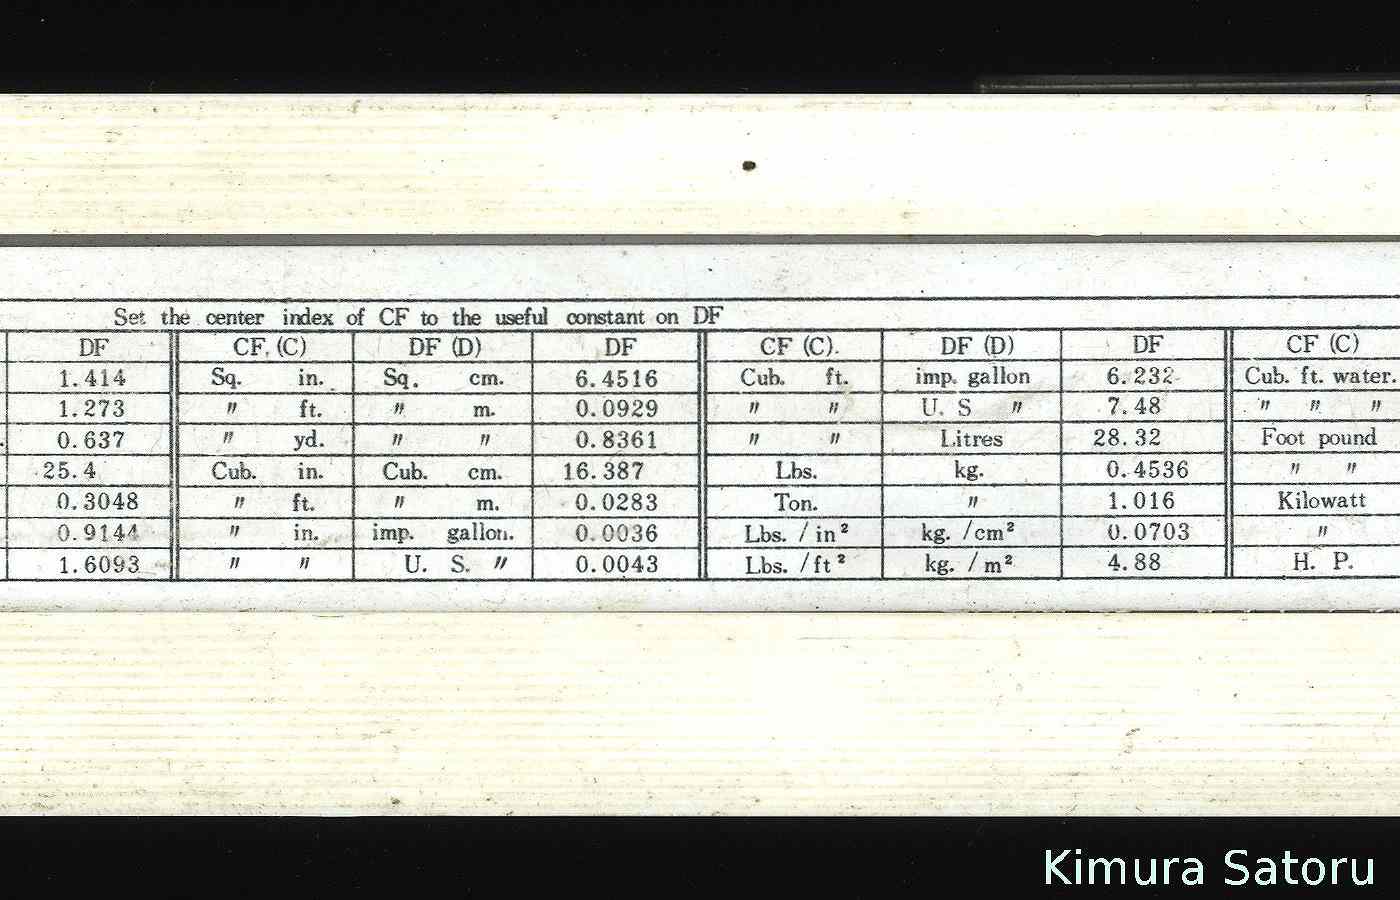 Set the center index of CF to the useful constant on DF
DF CF. (C) DF (D) DF CF (C). DF (D) DF CF (C)
1.414 Sq. in. Sq. cm. 6.4516 Cub. ft. imp. gallon 6.232 Cub. ft. water.
1.273 〃 ft. 〃 m. 0.0929 〃 〃 U. S 〃 7.48 〃 〃 〃
0.637 〃 yd. 〃 〃 0.8361 〃 〃 Litres 28.32 Foot pound
25.4 Cub. in. Cub. cm. 16.387 Lbs. kg. 0.4536 〃 〃
0.3048 〃 ft. 〃 m. 0.0283 Ton. 〃 1.016 Kilowatt
0.9144 〃 in. imp. gallon. 0.0036 Lbs. / in² kg. /cm² 0.0703 〃
1.6093 〃 〃 U. S. 〃 0.0043 Lbs. /ft² kg. /m² 4.88 H. P.
Kimura Satoru